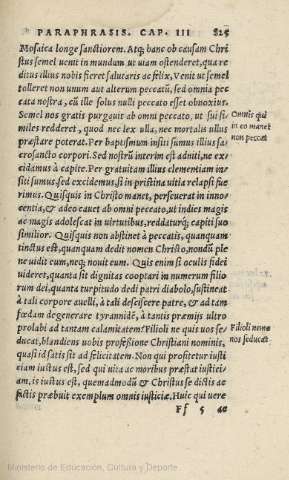 PARAPHRASIS. CAP. III 825
Mosaica longe sanctiorem. Atq; hanc ob causam Chri
stus semel uenit in mundum ut uiam ostenderet, qua re
ditus illius nobis fieret salutaris ac felix, Venit ut semel
tolleret non unum aut alterum peccatū, sed omnia pec
cata nostra, cū ille solus nulli peccato esset obnoxius.
Semel nos gratis purgauit ab omni peccato, ut sui si/
miles redderet, quod nec lex ulla, nec mortalis ullus
præstare poterat. Per baptismum insiti sumus illius sa/
crosancto corpori. Sed nostrū interim est adniti, ne ex/
cidamus à capite. Per gratuitam illius clementiam in/
siti sumus, sed excidemus, si in pristina uitia relapsi fue
rimus. Quisquis in Christo manet, perseuerat in inno/
centia, & adeo cauet ab omni peccato, ut indies magis
ac magis adolescat in uirtutibus, reddaturq; capiti suo
similior. Quisquis non abstinet à peccatis, quanquam
tinctus est, quanquam dedit nomen Christo, nondū ple
ne uidit eum, neq; nouit eum. Quis enim si oculis fidei
uideret, quanta sit dignitas cooptari in numerum filio
rum dei, quanta turpitudo dedi patri diabolo, sustineat
à tali corpore auelli, à tali desciscere patre, & ad tam
fœdam degenerare tyrannidē, à tantis præmijs ultro
prolabi ad tantam calamitatem? Filioli ne quis uos se/
ducat, blandiens uobis professione Christiani nominis,
quasi id satis sit ad felicitatem. Non qui profitetur iusti
ciam iustus est, sed qui uita ac moribus præstat iustici/
am, is iustus est, quemadmodū & Christus se dictis ac
factis præbuit exemplum omnis iusticiæ. Huic qui uere
Ff 5 ad
Omnis qui
in eo manet
non peccat
Filioli nemo
uos seducat.
Ministerio de Educación, Cultura y Deporte